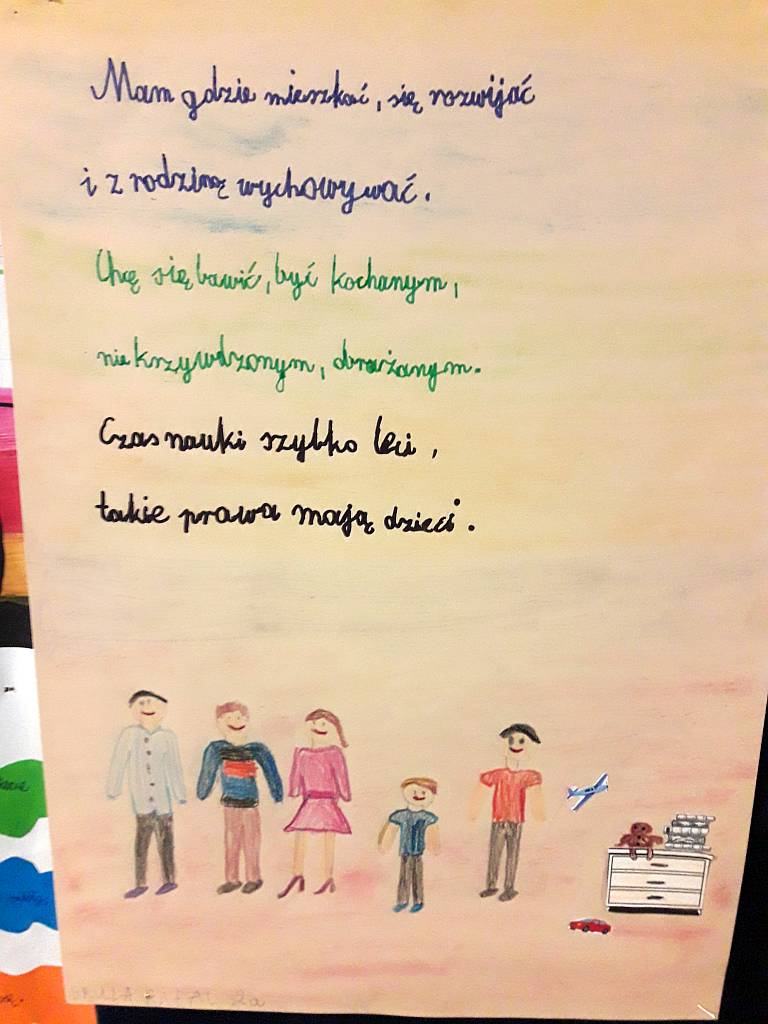 Mam gdzie mieszkać, się rozwijać
i z rodziną wychowywać.
Chcę się bawić, być kochanym,
nie krzywdzonym, obrażanym.
Czas nauki szybko leci,
takie prawa mają dzieci.
2a